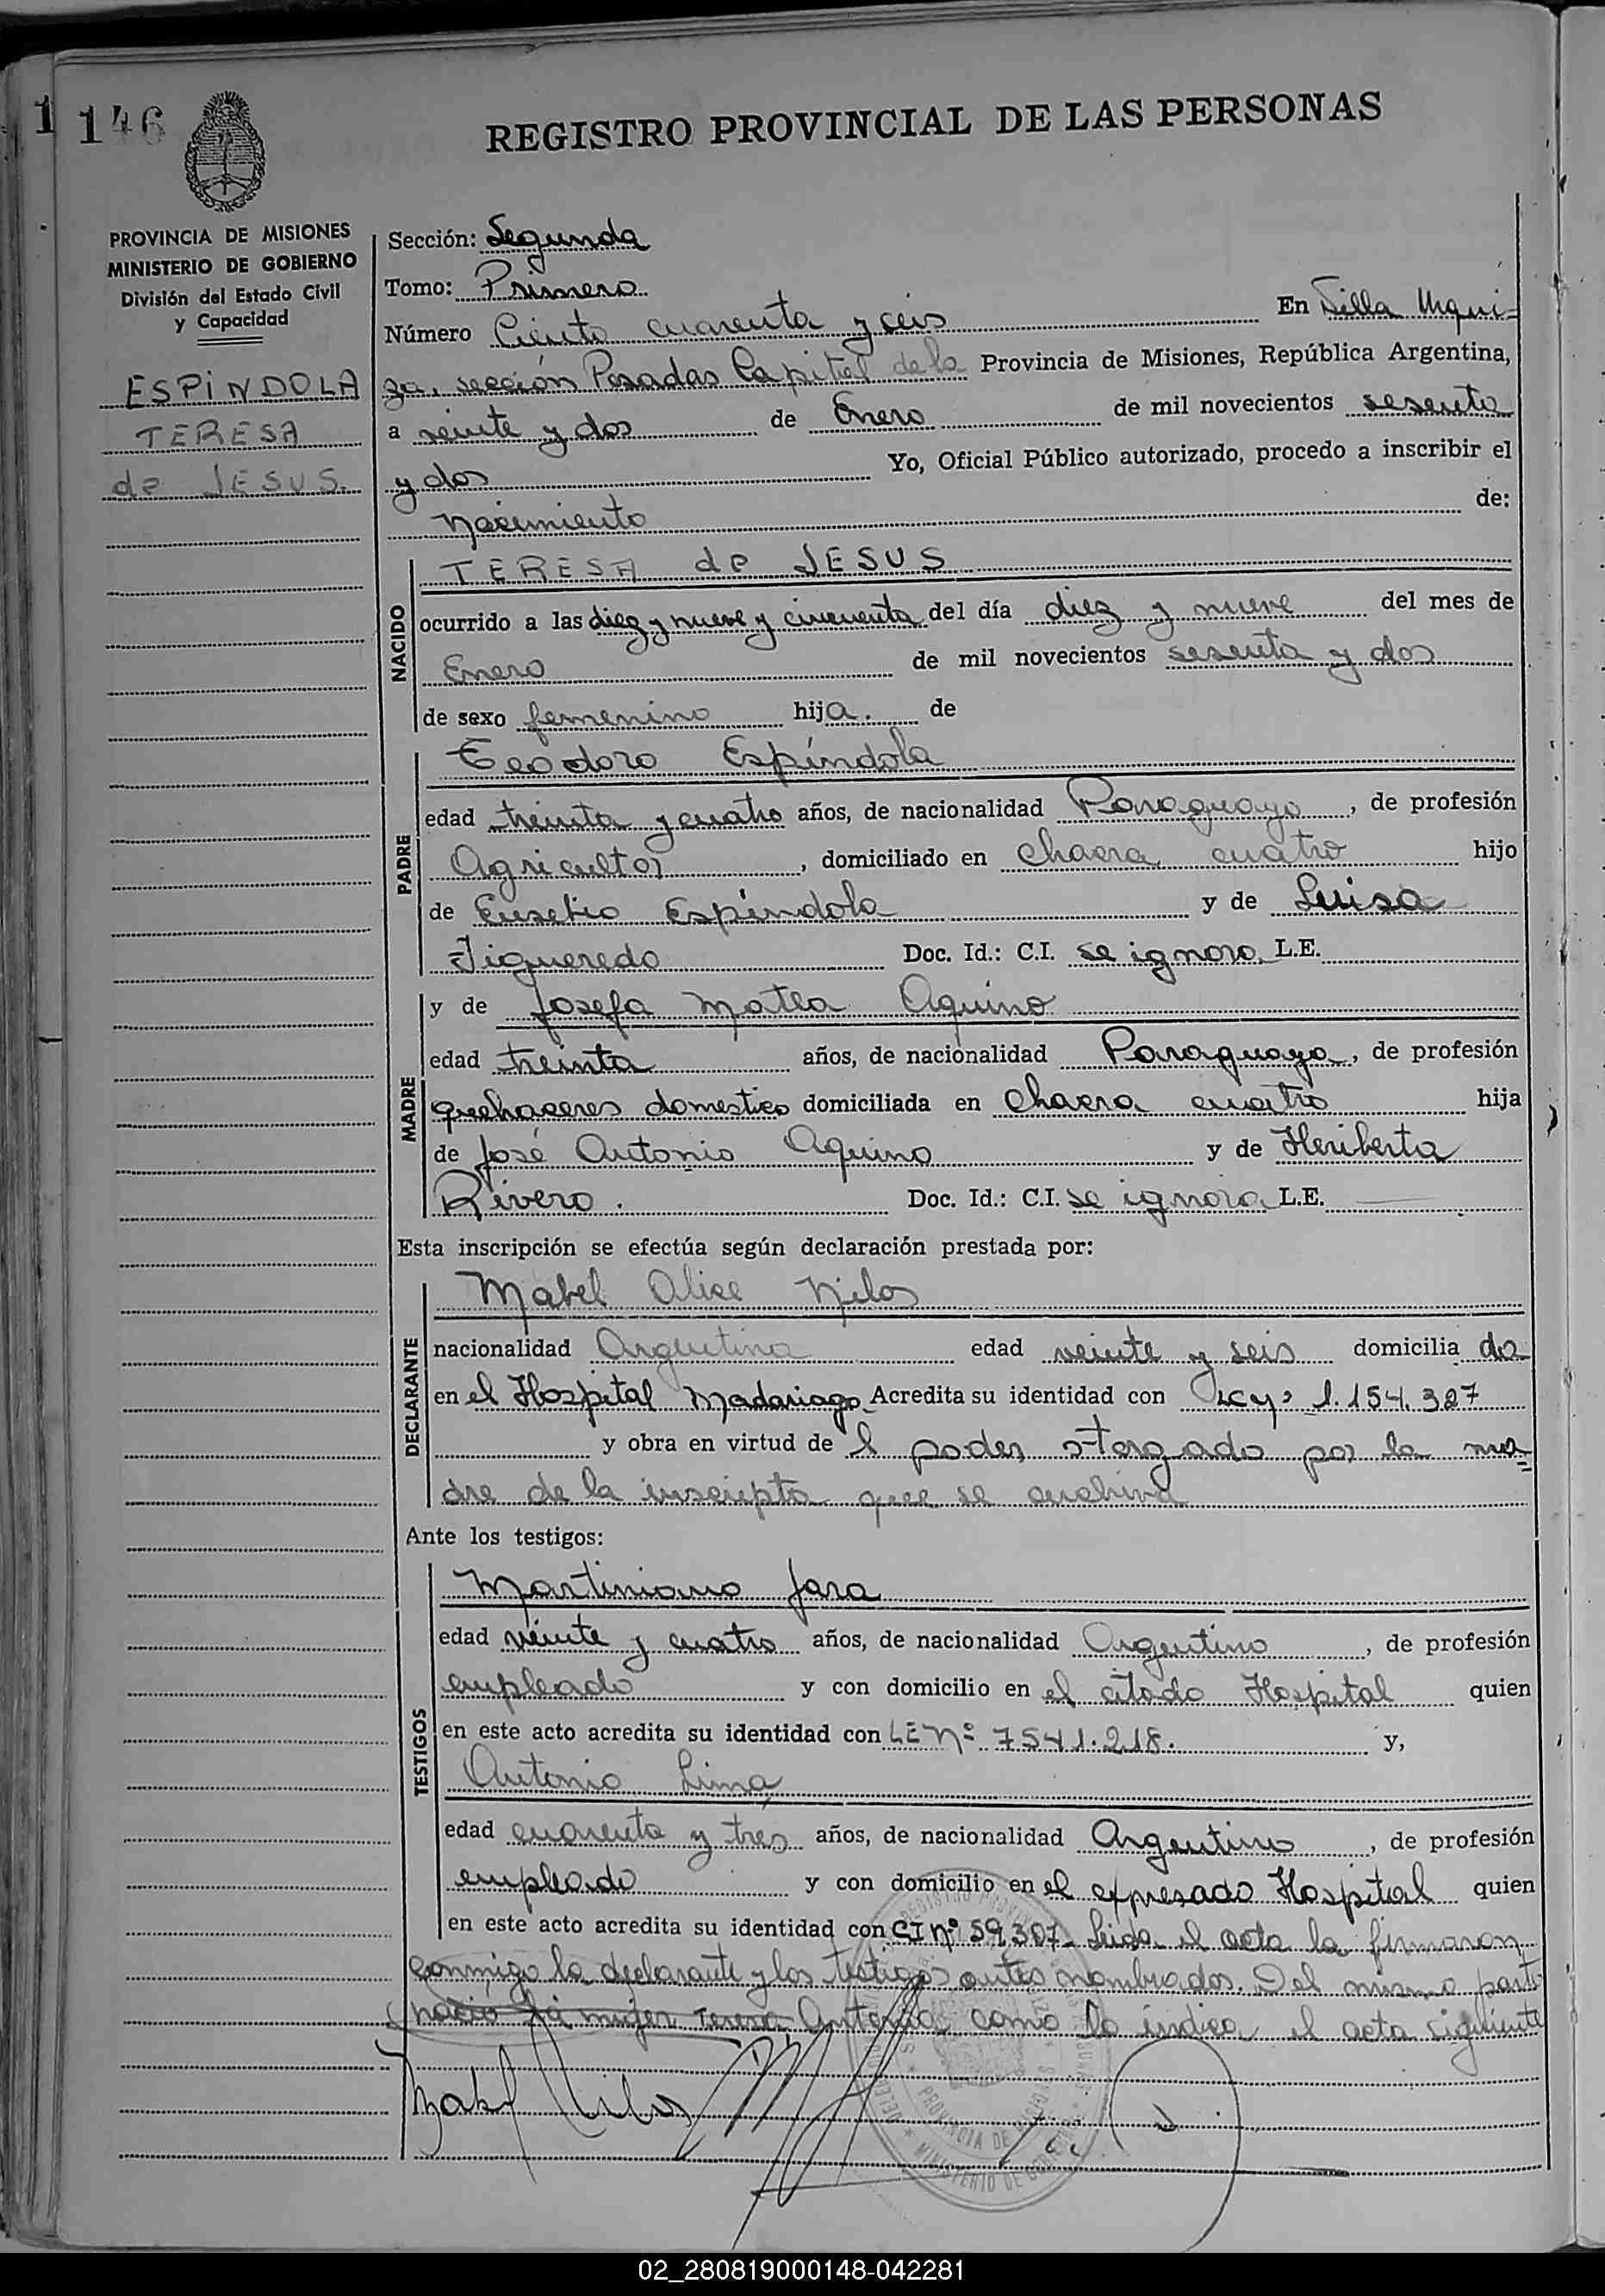 1 146
REGISTRO PROVINCIAL DE LAS PERSONAS
PROVINCIA DE MISIONES
MINISTERIO DE GOBIERNO
División del Estado Civil
y Capacidad
ESPINDOLA
TERESA
de JESUS.
Sección: Segunda
Tomo: Primero
Número Ciento cuarenta y seis En Villa Urqui-
za, sección Posadas Capital de la Provincia de Misiones, República Argentina,
a veinte y dos de Enero de mil novecientos sesenta
y dos Yo, Oficial Público autorizado, procedo a inscribir el
Nacimiento de:
NACIDO
TERESA de JESUS
ocurrido a las diez y nueve y cincuenta del día diez y nueve del mes de
Enero de mil novecientos sesenta y dos
de sexo femenino hija. de
PADRE
Teodoro Espíndola
edad treinta y cuatro años, de nacionalidad Paraguayo, de profesión
Agricultor, domiciliado en chacra cuatro hijo
de Eusebio Espíndola y de Luisa
Figueredo Doc. Id.: C.I. se ignora L.E.
MADRE
y de Josefa Matea Aquino
edad treinta años, de nacionalidad Paraguaya, de profesión
quehaceres domestico domiciliada en chacra cuatro hija
de José Antonio Aquino y de Heriberta
Rivero. Doc. Id.: C.I. se ignora L.E.
Esta inscripción se efectúa según declaración prestada por:
DECLARANTE
Mabel Alice Nilos
nacionalidad Argentina edad veinte y seis domicilia da
en el Hospital Madariaga Acredita su identidad con 1.154.327
y obra en virtud de l poder otorgado por la ma
dre de la inscripta que se archiva
Ante los testigos:
TESTIGOS
Martiniano Jara
edad veinte y cuatro años, de nacionalidad Argentino, de profesión
empleado y con domicilio en el citado Hospital quien
en este acto acredita su identidad con LE Nº 7541.218. y,
Antonio Lima
edad cuarenta y tres años, de nacionalidad Argentino, de profesión
empleado y con domicilio en el expresado Hospital quien
en este acto acredita su identidad con CI Nº 59.307- Leida el acta la firmaron
conmigo la declarante y los testigos antes nombrados. Del mismo parto
nació la mujer Teresa Antonia como lo indica el acta siguiente
Mabel Nilos
PROVINCIA DE MISIONES
MINISTERIO DE GOBIERNO
02_280819000148-042281